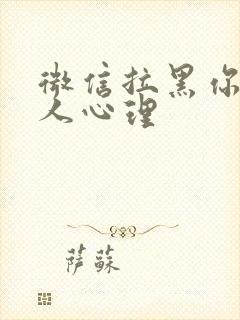 微信拉黑你
人心理
萨苏